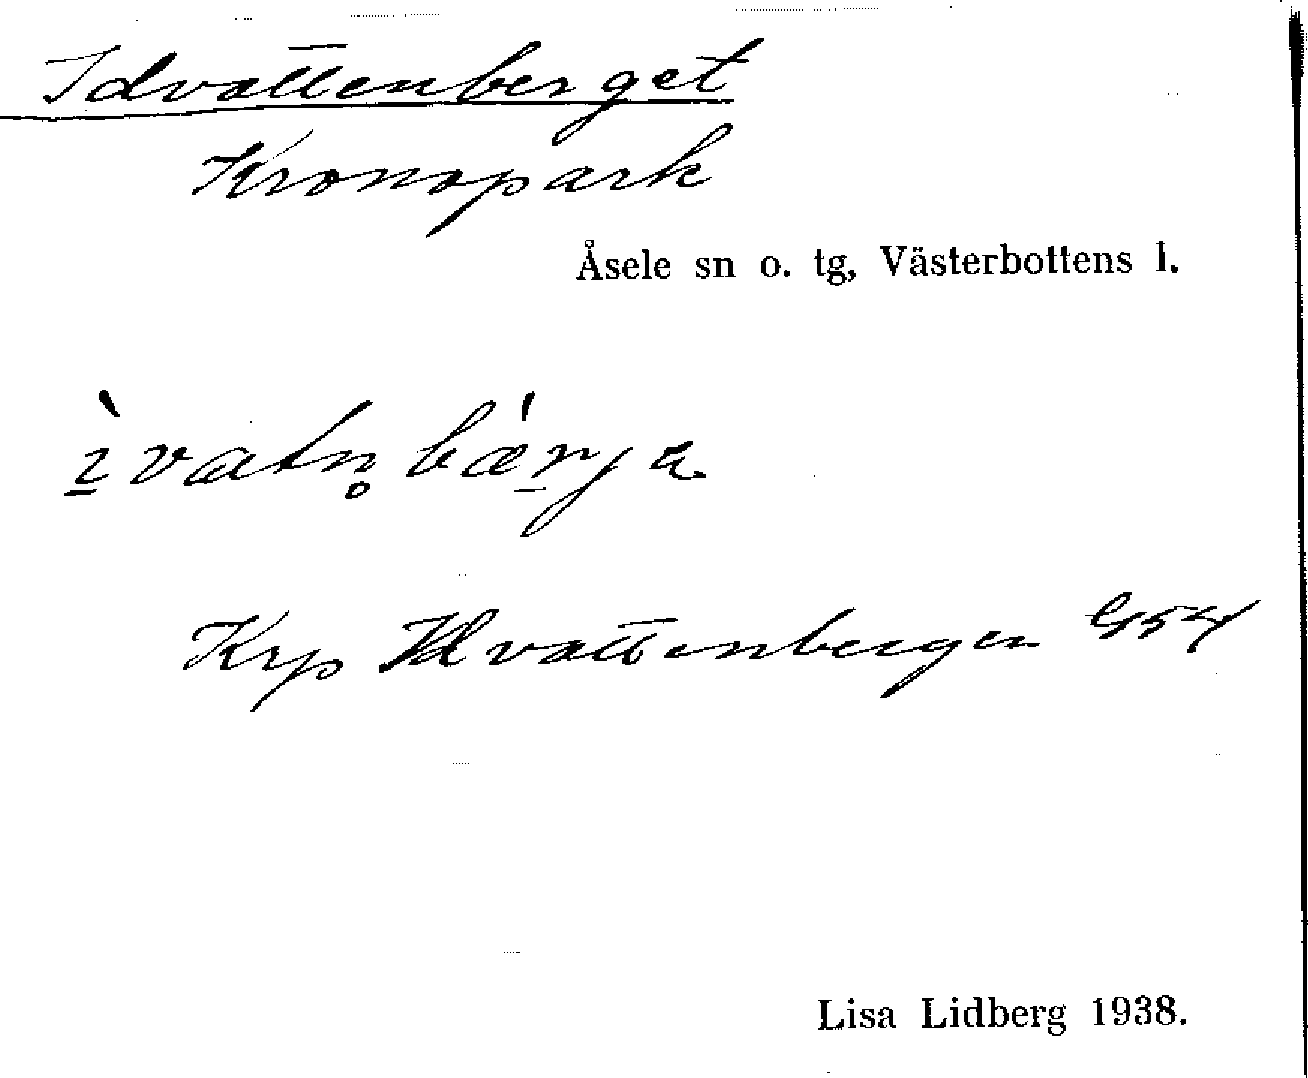 Idvattenberget
Kronopark
Åsele sn o. tg, Västerbottens l.
ìvatn̥ bǽ̱rja
Krp Idvattenbergen G54
Lisa Lidberg 1938.